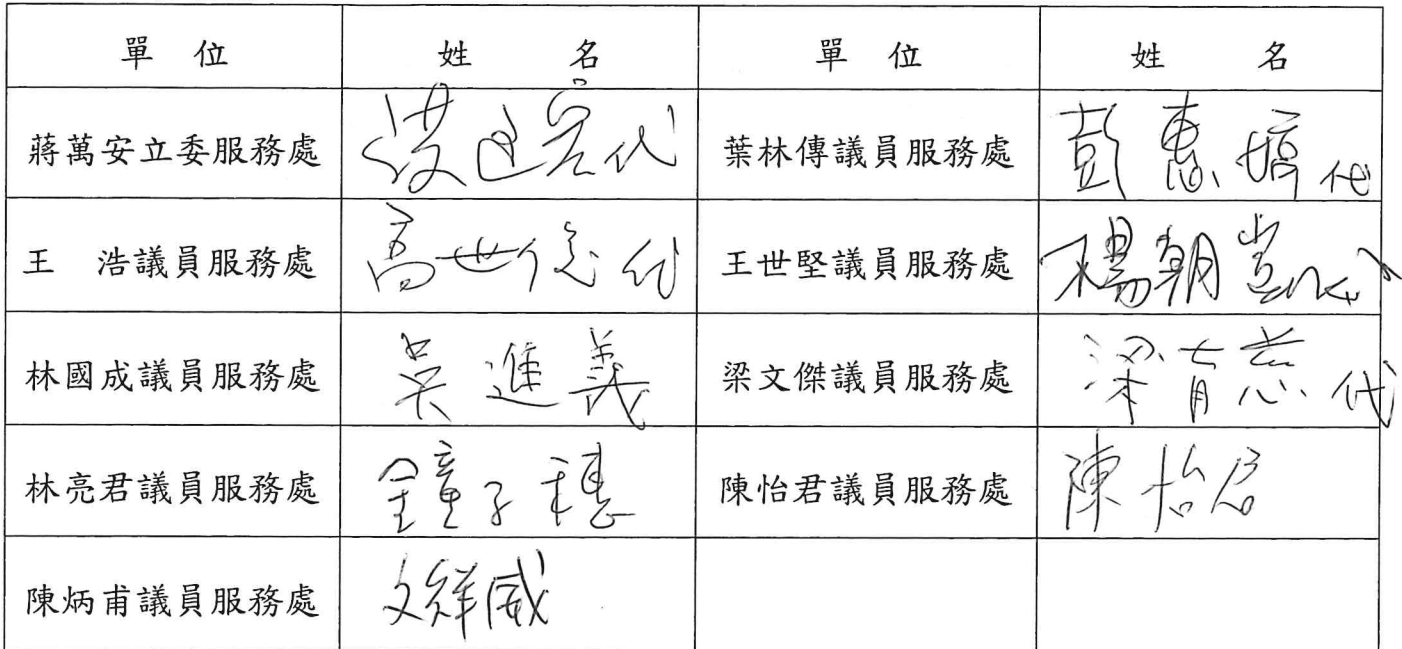 單位 姓名 單位 姓名
蔣萬安立委服務處 代 葉林傳議員服務處 彭惠 代
王 浩議員服務處 高世 代 王世堅議員服務處 楊朝 代
林國成議員服務處 吳進義 梁文傑議員服務處 梁育慈代
林亮君議員服務處 鐘子穗 陳怡君議員服務處 陳怡君
陳炳甫議員服務處 文祥威